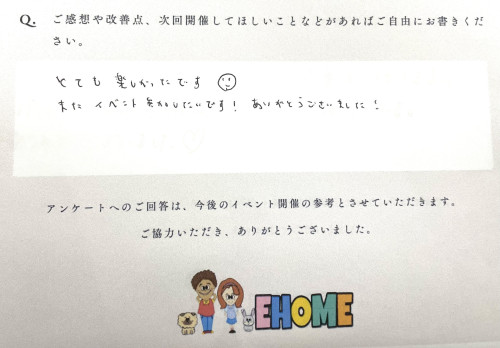 Q. ご感想や改善点、次回開催してほしいことなどがあればご自由にお書きくだ
さい。
とても 楽しかったです
また イベント 参加したいです! ありがとうございました!
アンケートへのご回答は、今後のイベント開催の参考とさせていただきます。
ご協力いただき、ありがとうございました。
EHOME